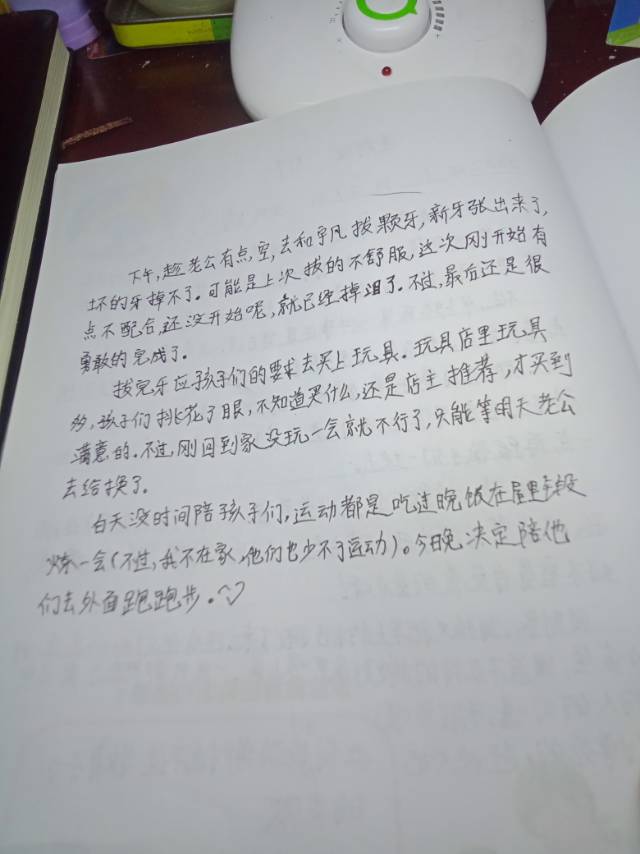 下午,趁老公有点空,去和宇凡拔颗牙,新牙张出来了,
坏的牙掉不了.可能是上次拔的不舒服,这次刚开始有
点不配合,还没开始呢,就已经掉泪了.不过,最后还是很
勇敢的完成了.
拔完牙应孩子们的要求去买上玩具.玩具店里玩具
多,孩子们挑花了眼,不知道买什么,还是店主推荐,才买到
满意的.不过,刚回到家没玩一会就不行了,只能等明天老公
去给换了.
白天没时间陪孩子们,运动都是吃过晚饭在屋里锻
炼一会(不过,我不在家,他们也少不了运动)。今晚决定陪他
们去外面跑跑步.